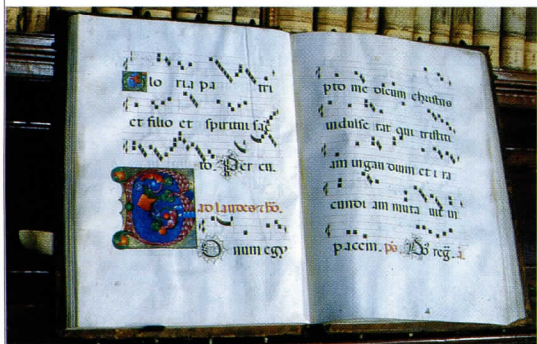 Glo ria pa tri
et filio et spiritui sac
to. Per cu.
ad laudes
num egy
pto me dicum christus
indulse rat qui tristiti
am uigau dium et i ra
cundi am muta uit in
pacem. ps. reg. a